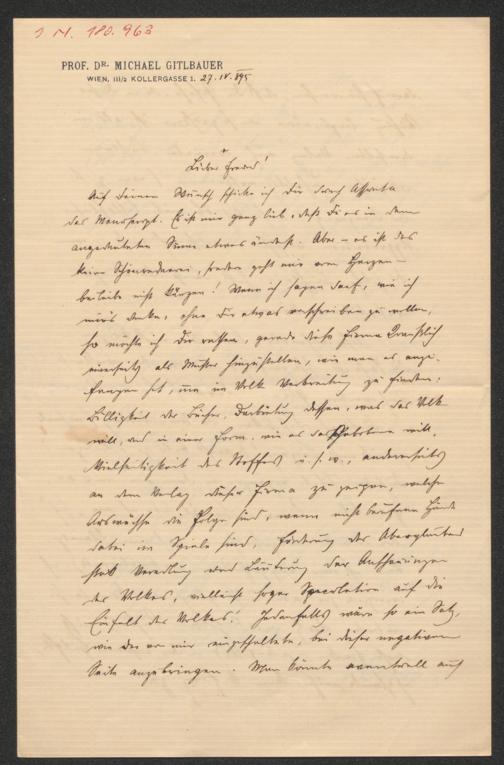 I N. 180.963
PROF. DR. MICHAEL GITLBAUER
WIEN, III/2 KOLLERGASSE 1. 27. IV. 895
Lieber Freund!
Auf Deinen Wunsch schicke ich Dir durch
das Manuscript. Es ist mir ganz lieb, daß Du es in dem
angedeuteten Sinne etwas änderst. Aber – es ist das
keine Schmeichelei, sondern geht mir vom Herzen –
beileibe nicht kürzen! Wenn ich sagen darf, wie ich
mir's denke, ohne Dir etwas vorschreiben zu wollen,
so möchte ich Dir rathen, gerade diese Firma
einerseits als Muster hinzustellen, wie man es ange-
fangen hat, um im Volk Verbreitung zu finden:
Billigkeit der Bücher, Darbietung dessen, was das Volk
will, und in einer Form, wie es das will,
Vielseitigkeit des Stoffes u. s. w., andererseits
an dem Verlag dieser Firma zu zeigen, welche
Auswüchse die Folge sind, wenn nicht berufene Hände
dabei im Spiele sind, Förderung des Aberglaubens
statt Veredlung und Läuterung der Anschauungen
des Volkes, vielleicht sogar Speculation auf die
Einfalt des Volkes! Jedenfalls wäre so ein Satz,
wie der von mir, bei dieser negativen
Seite anzubringen. Man könnte eventuell auch